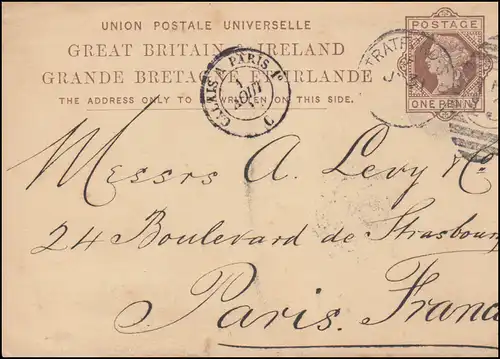 UNION POSTALE UNIVERSELLE
GREAT BRITAIN & IRELAND
GRANDE BRETAGNE ET IRLANDE
THE ADDRESS ONLY TO BE WRITTEN ON THIS SIDE.
POSTAGE
ONE PENNY
CALAIS A PARIS 1º
AOUT
C
Messrs A. Levy &
24 Boulevard de Strasbour
Paris. Franc